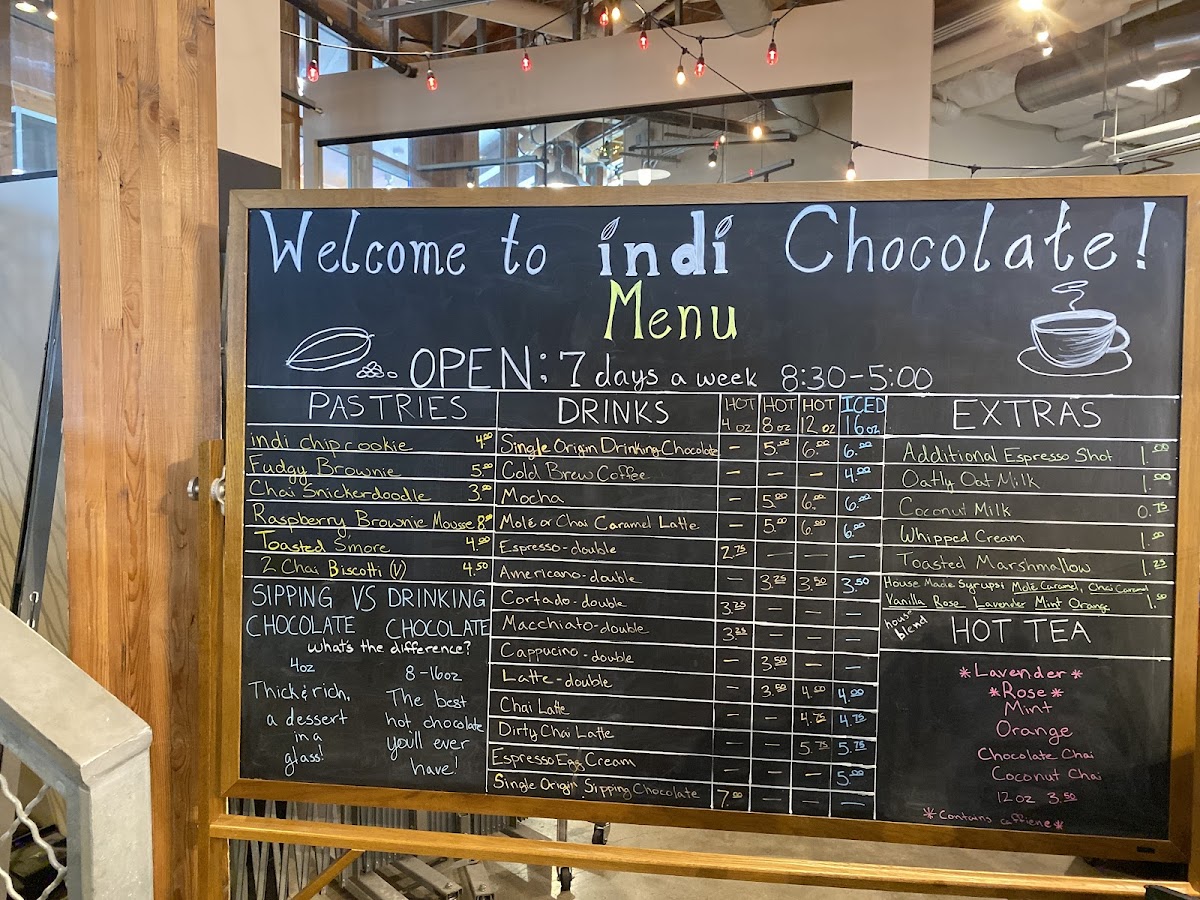 Welcome to indi Chocolate!
Menu
OPEN: 7 days a week 8:30-5:00
PASTRIES
indi chip cookie 4.00
Fudgy Brownie 5.00
Chai Snickerdoodle 3.00
Raspberry Brownie Mousse 8.00
Toasted S'more 4.00
2 Chai Biscotti (V) 4.50
SIPPING VS DRINKING
CHOCOLATE CHOCOLATE
what's the difference?
4oz
Thick & rich,
a dessert
in a
glass!
8-16oz
The best
hot chocolate
you'll ever
have!
DRINKS HOT HOT HOT ICED
4 oz 8 oz 12 oz 16 oz
Single Origin Drinking Chocolate — 5.00 6.00 6.00
Cold Brew Coffee — — — 4.00
Mocha — 5.00 6.00 6.00
Molé or Chai Caramel Latte — 5.00 6.00 6.00
Espresso-double 2.75 — — —
Americano-double — 3.25 3.50 3.50
Cortado-double 3.25 — — —
Macchiato-double 3.25 — — —
Cappucino-double — 3.50 — —
Latte-double — 3.50 4.00 4.00
Chai Latte — — 4.75 4.75
Dirty Chai Latte — — 5.75 5.75
Espresso Egg Cream — — — 5.00
Single Origin Sipping Chocolate 7.00 — — —
EXTRAS
Additional Espresso Shot 1.00
Oatly Oat Milk 1.00
Coconut Milk 0.75
Whipped Cream 1.00
Toasted Marshmallow 1.25
House Made Syrups: Molé Caramel, Chai Caramel
Vanilla Rose Lavender Mint Orange 1.50
house blend
HOT TEA
*Lavender*
*Rose*
Mint
Orange
Chocolate Chai
Coconut Chai
12oz 3.50
*Contains caffiene*